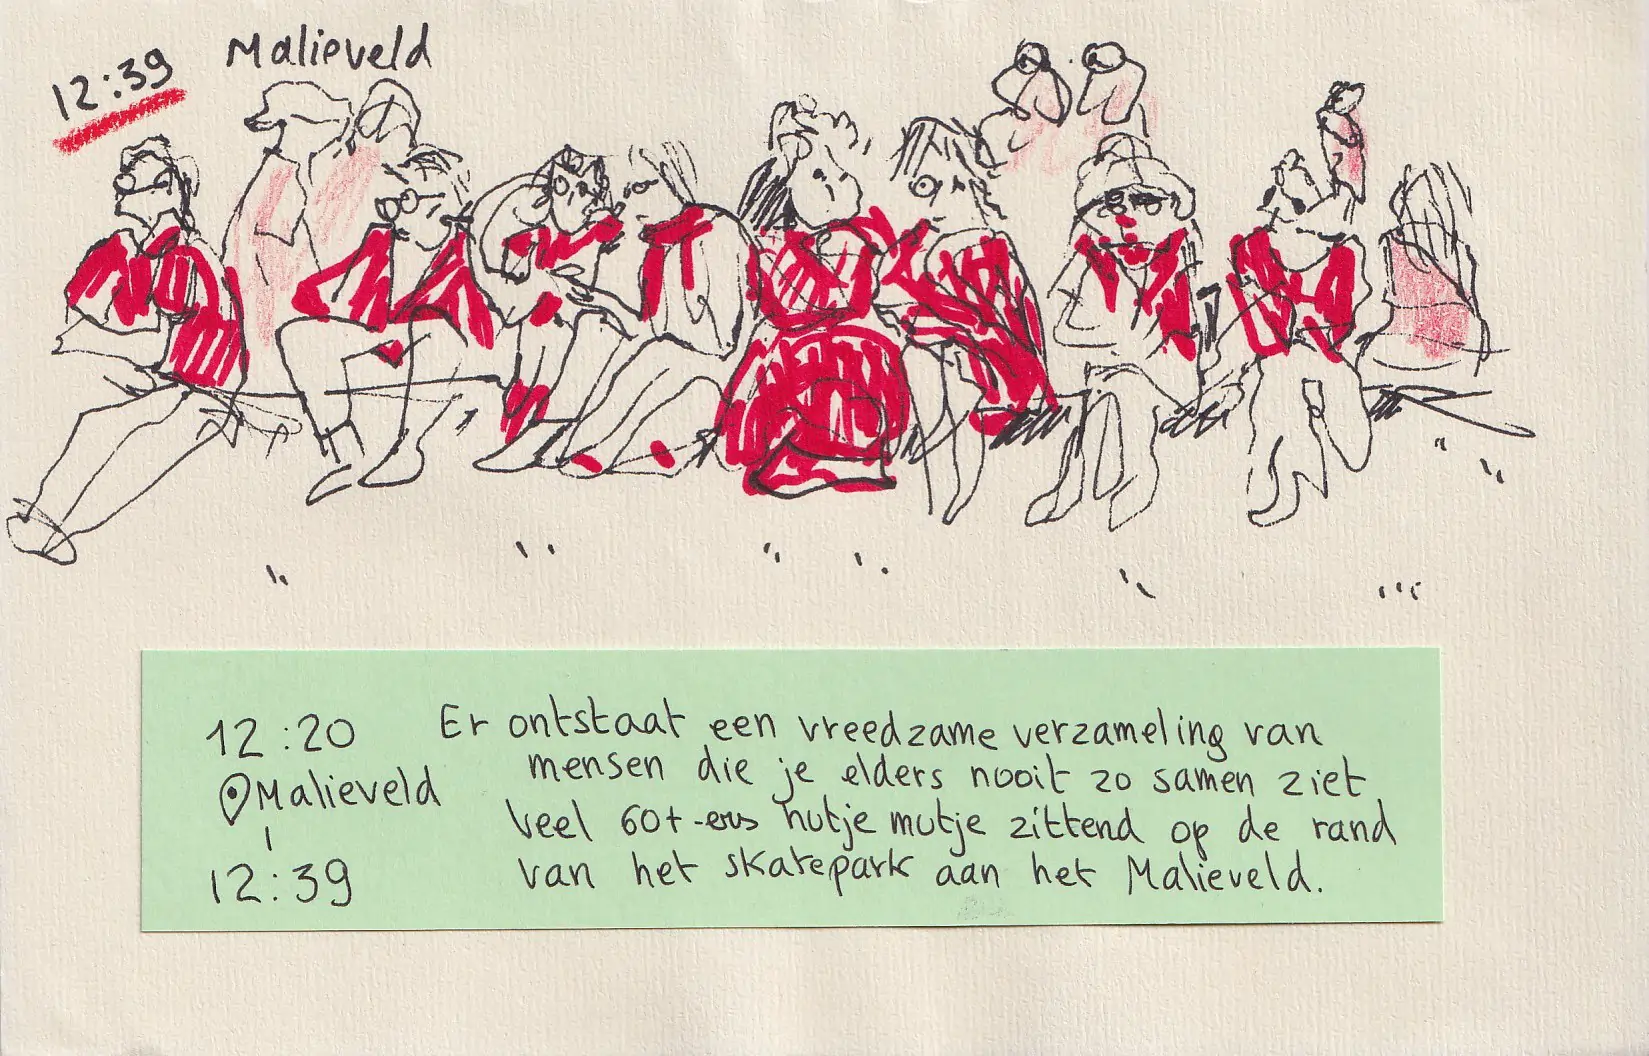 12:39 Malieveld
12:20 Er ontstaat een vreedzame verzameling van
Malieveld mensen die je elders nooit zo samen ziet
veel 60+-ers hutje mutje zittend op de rand
12:39 van het skatepark aan het Malieveld.